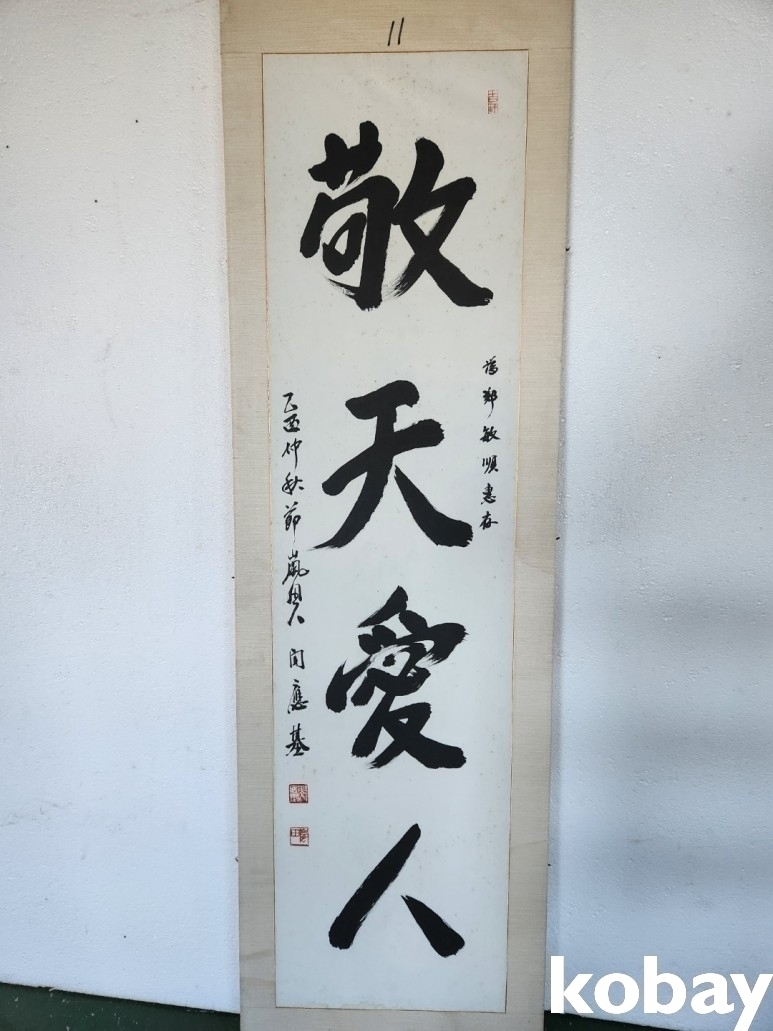 11
敬天愛人
爲鄭敏順惠存
乙酉仲秋節嵐
應基
kobay